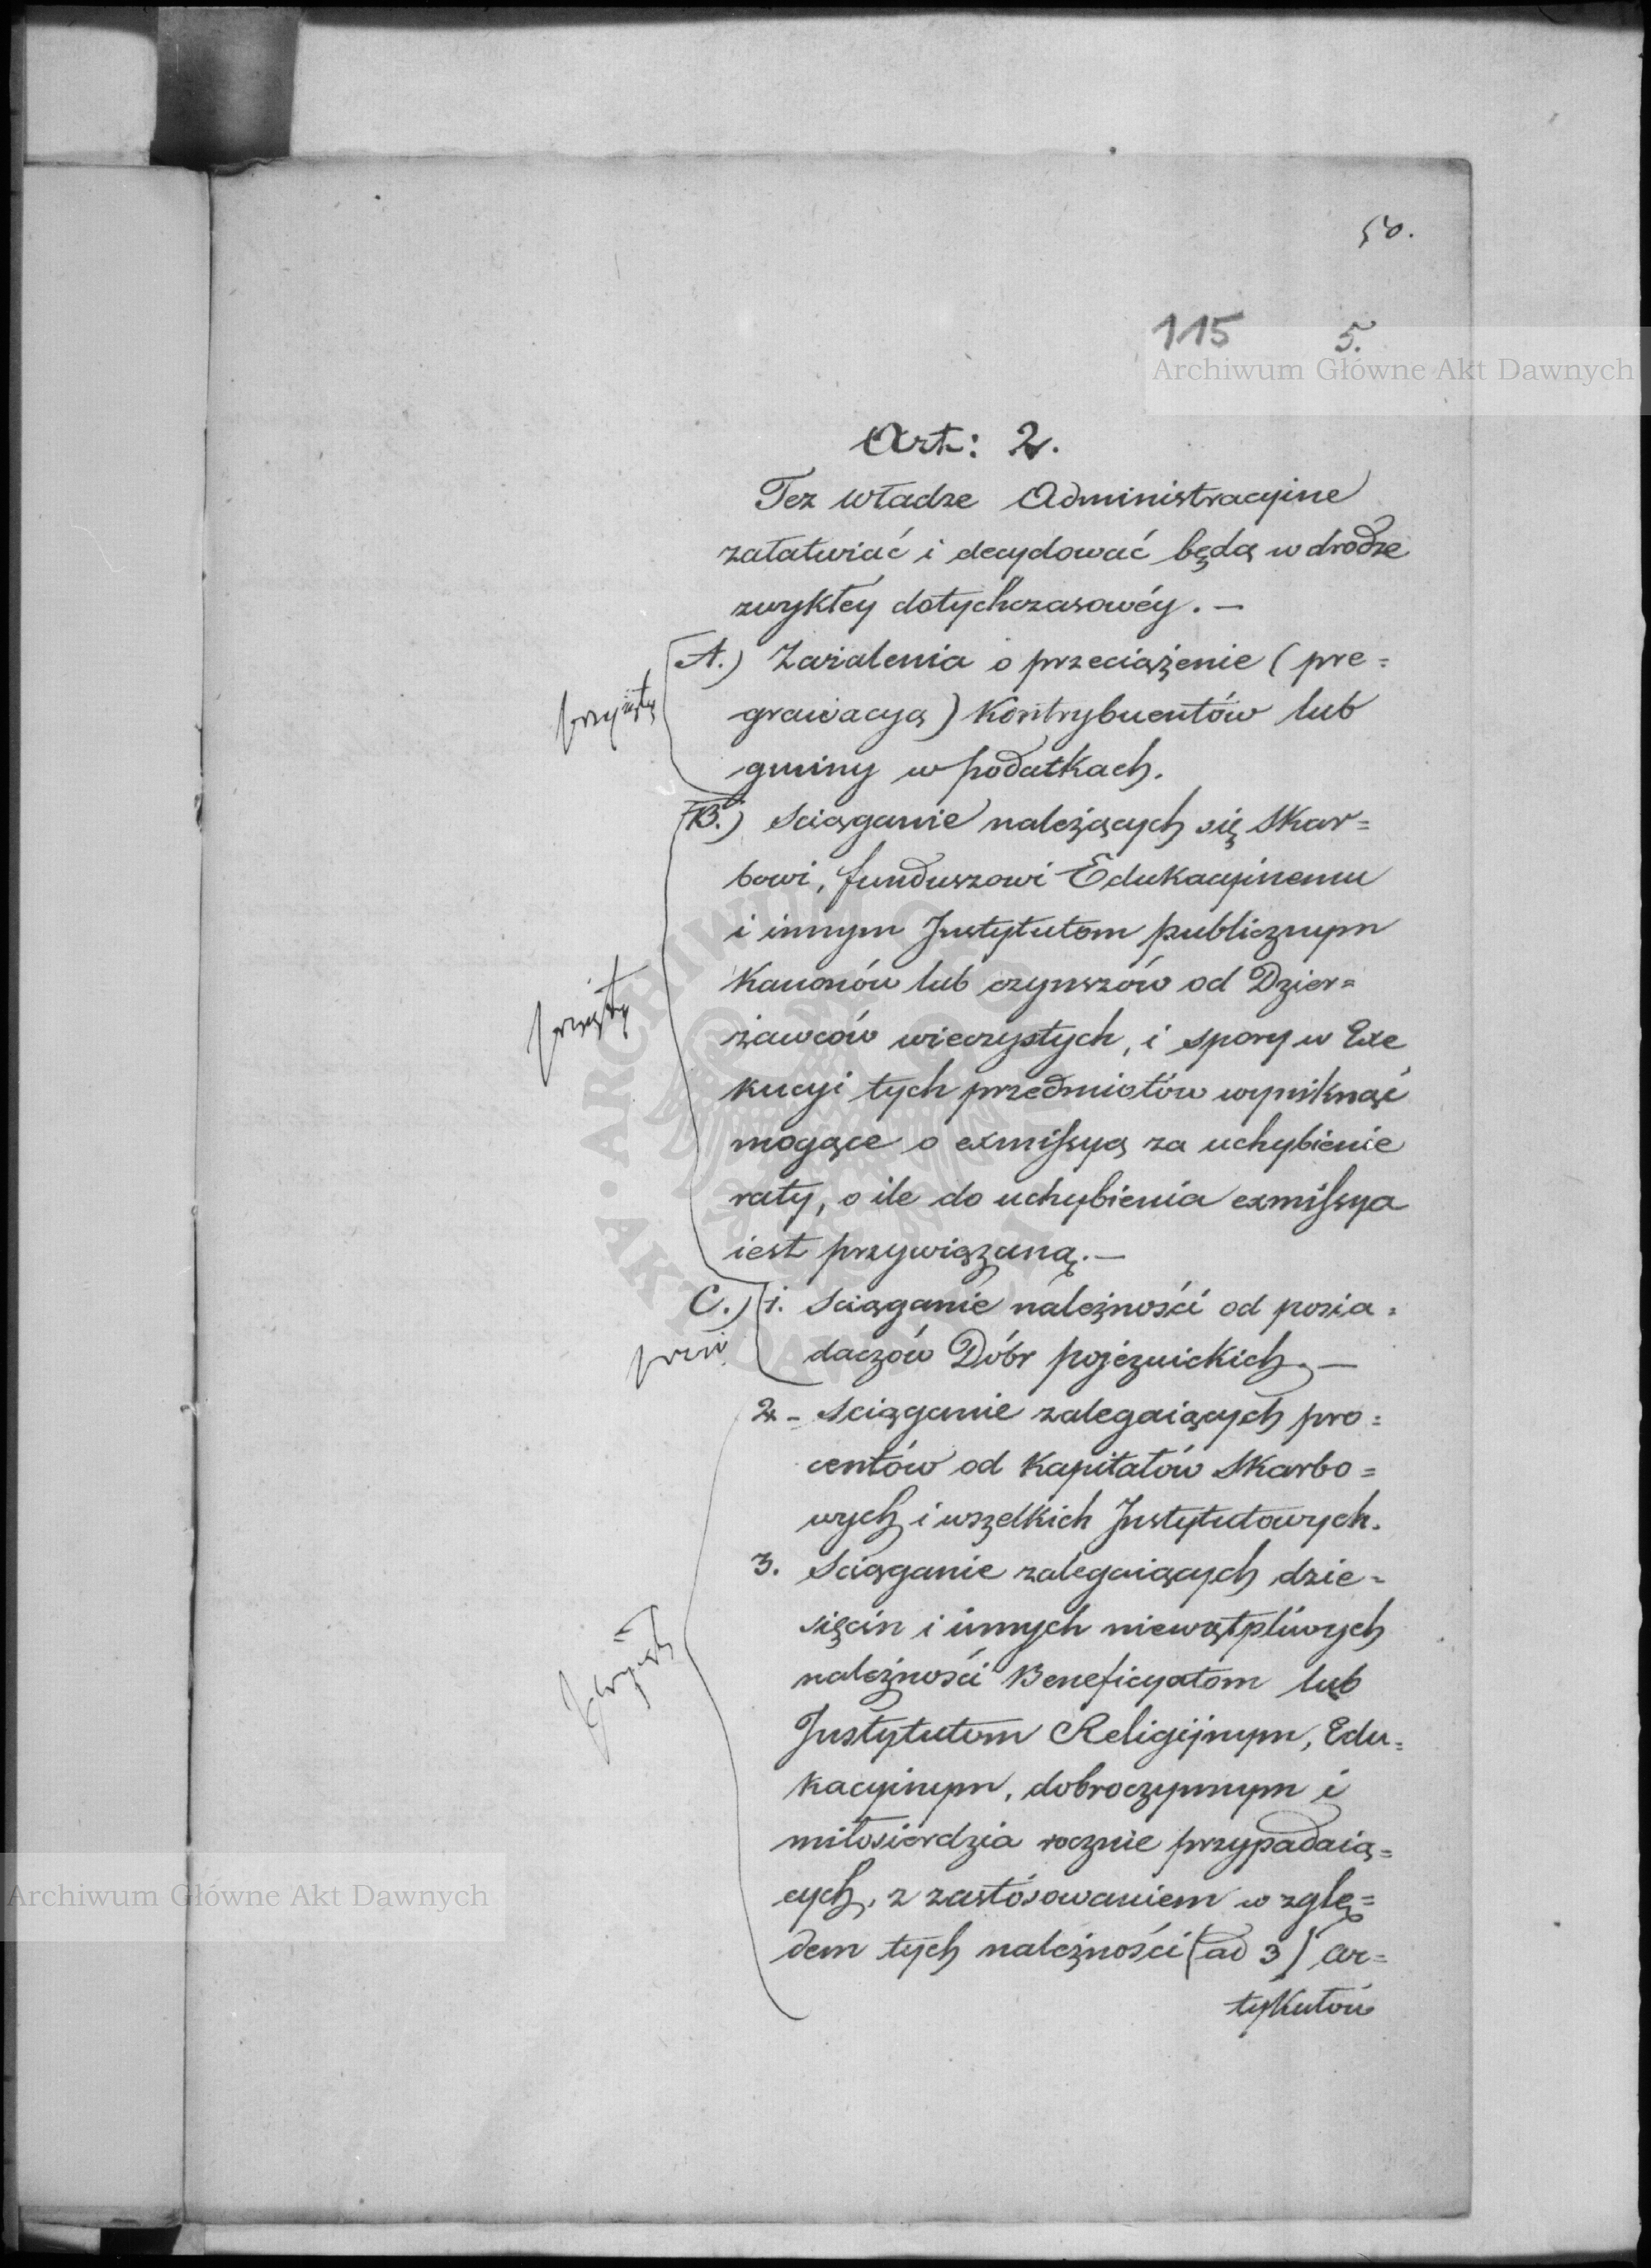 50.
115 5.
Archiwum Główne Akt Dawnych
Art: 2.
Tez władze Administracyine
załatwiać i decydować będą w drodze
zwykłey dotychczasowéy. —
A.) Zażalenia o przeciążenie ( pre=
grawacyą ) Kontrybuentów lub
gminy w podatkach.
B.) Sciąganie należących się Skar=
bowi, funduszowi Edukacyinemu
i innym Instytutom publicznym
Kanonów lub czynszów od Dzier=
żawców wieczystych, i spory w Exe
kucyi tych przedmiotów wyniknąć
mogące o exmissyą za uchybienie
raty, o ile do uchybienia exmissya
iest przywiązaną. —
C.) 1. Sciąganie należności od posia=
daczów Dóbr pojeznickich. —
2 - Sciąganie zalegaiących pro=
centów od Kapitałów Skarbo=
wych i wszelkich Instytutowych.
3. Sciąganie zalegaiących dzie=
sięcin i innych niewątpliwych
należności Beneficyatom lub
Instytutom Religijnym, Edu=
kacyinym, dobroczynnym i
miłosierdzia rocznie przypadaią=
cych, z zastósowaniem w zglę=
dem tych należności (ad 3) ar=
tykułów
przyięty
przyięty
Archiwum Główne Akt Dawnych
ARCHIWUM GŁÓWNE AKT DAWNYCH